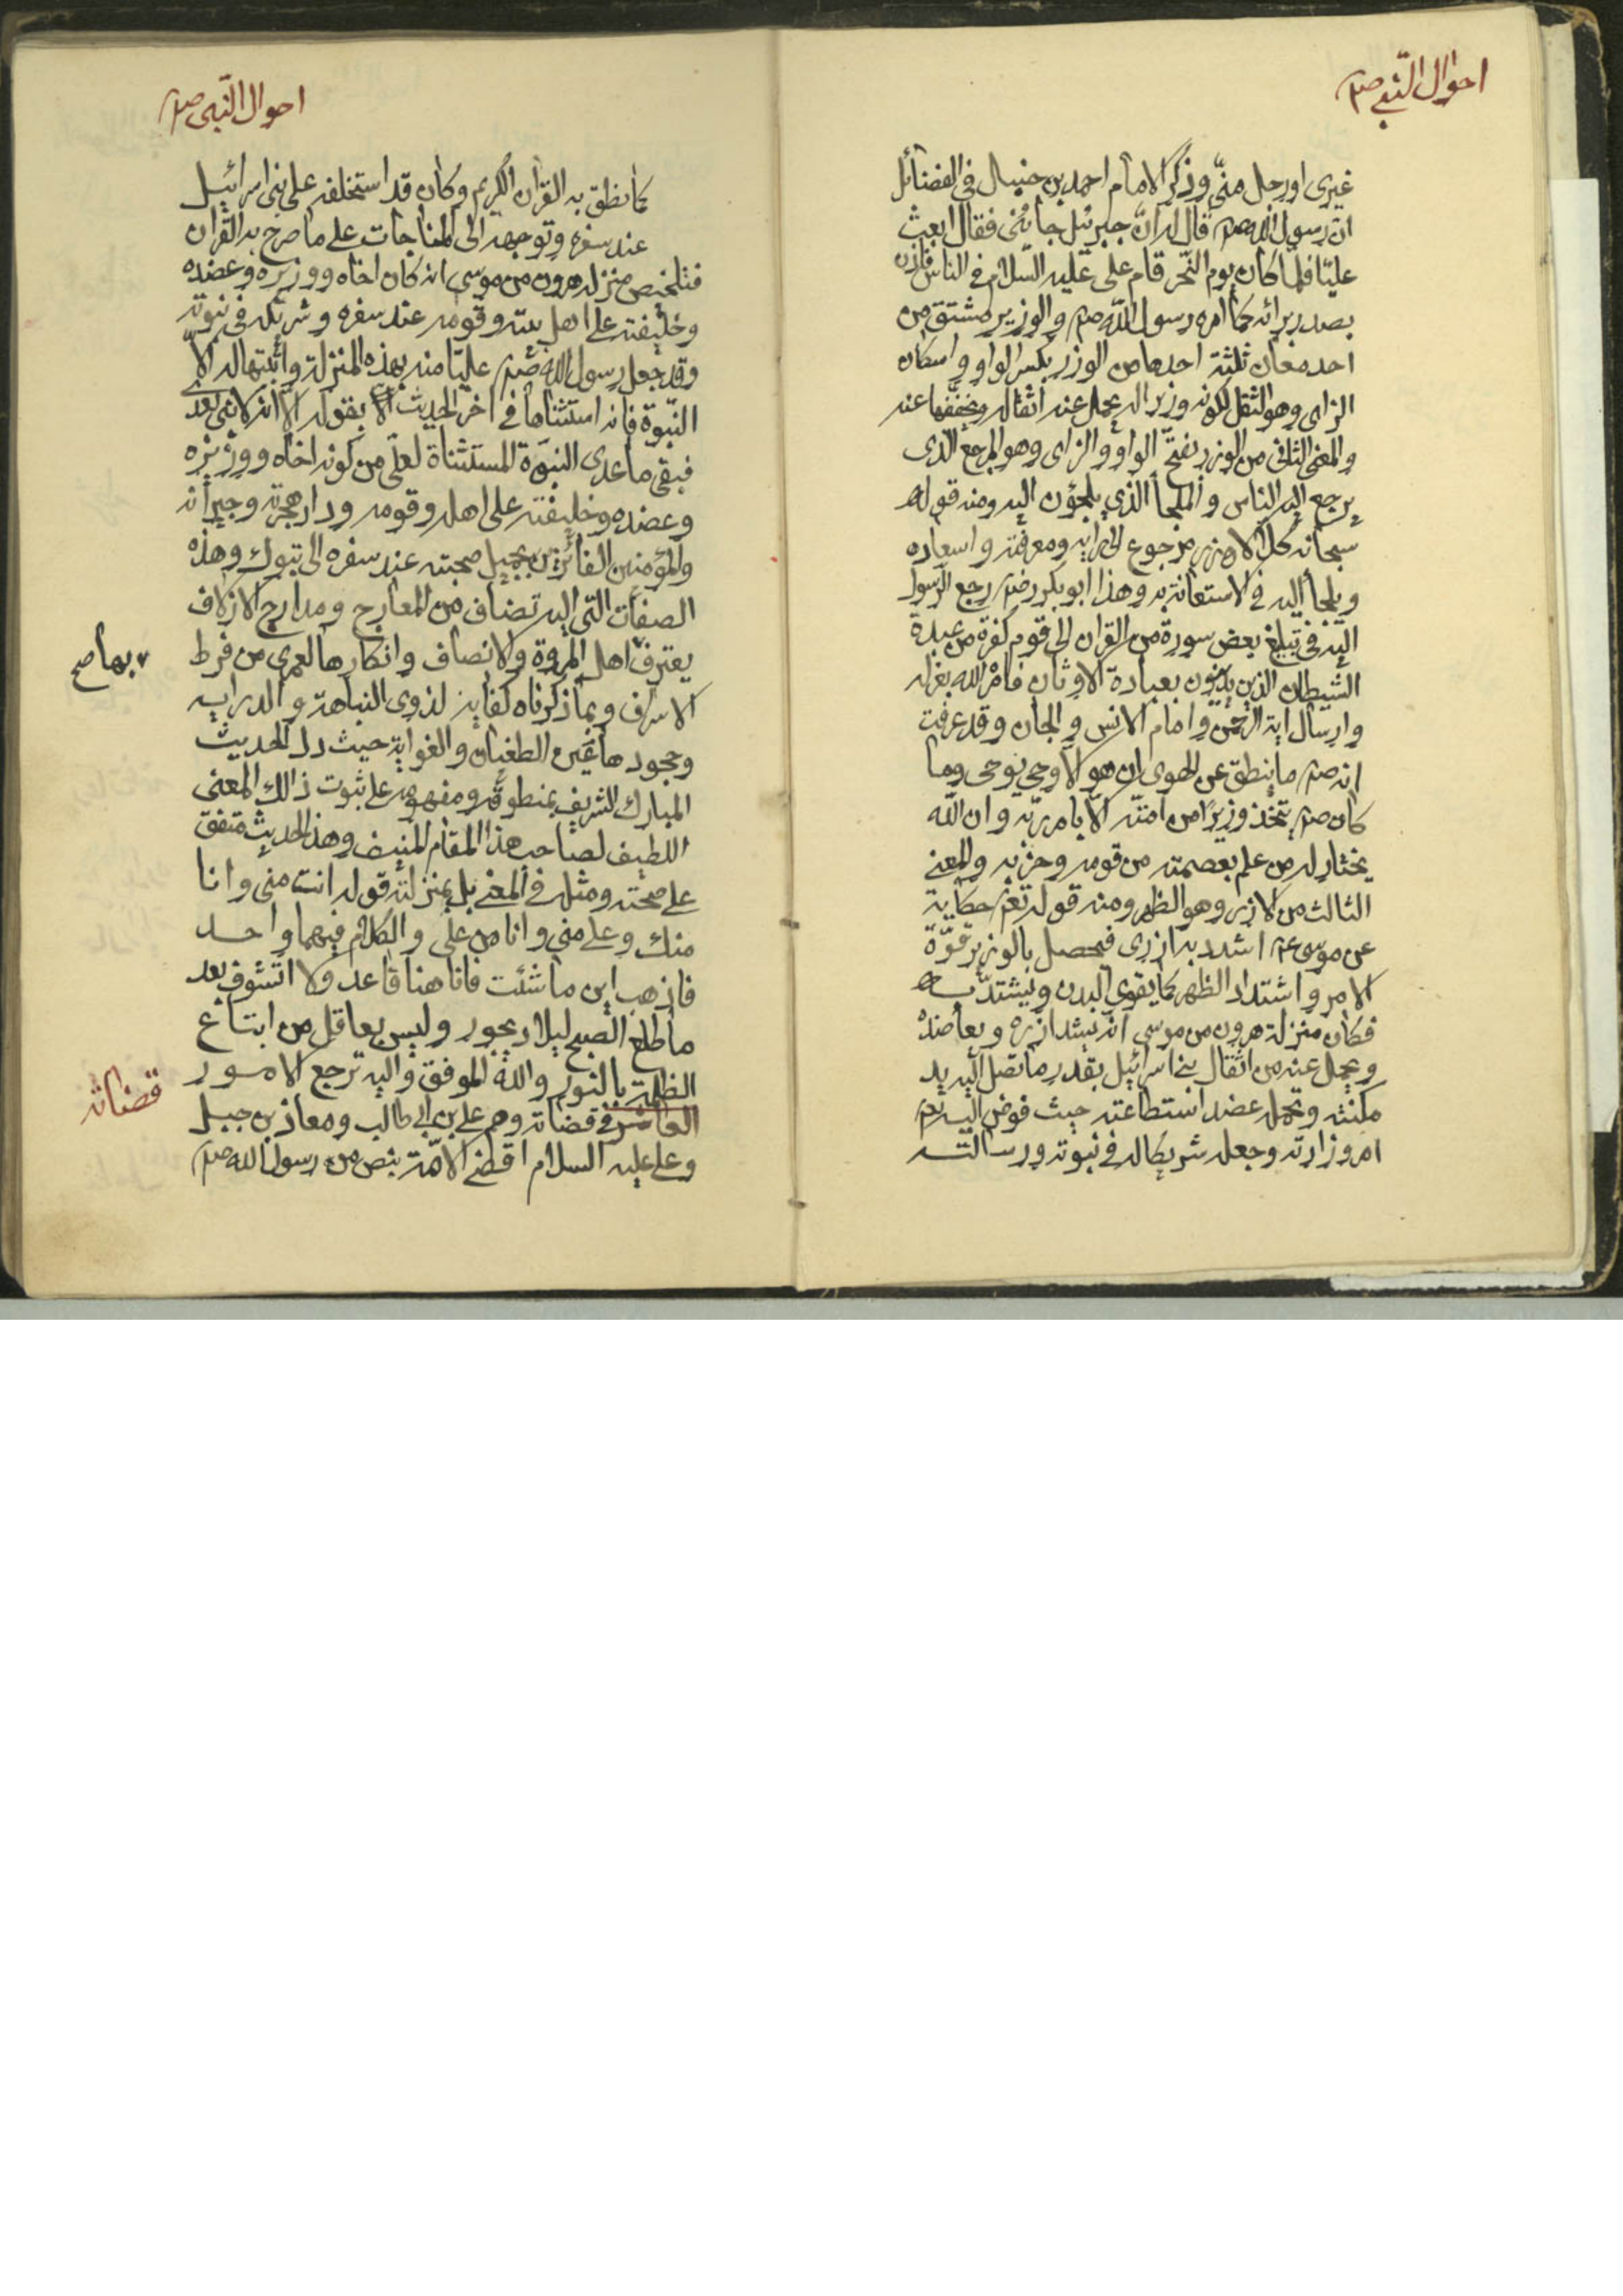 احوال النبي صم
غيري او رجل منّي وذكر الامام احمد بن حنبال في الفضائل
ان رسول الله صم قال له انّ جبرئيل جائني فقال ابعث
عليّا فلما كان يوم النّحر قام على عليه السلام في الناس فاذن
بصدر براته كما امره رسول الله صم والوزير مشتق من
احد معان ثلثة احدها من الوزر بكسر الواو واسكان
الزاى وهو الثقل لكونه وزيرا له يحمل عنه اثقاله ويخففها عنه
والمعنى الثانى من الوزر بفتح الواو والزاى وهو المرجع الذى
يرجع اليه الناس والملجأ الذي يلجؤن اليه ومنه قوله
سبحانه كلا لا وزر مرجوع الى رايه ومعرفته واسعاده
ويلجأ اليه في الاستعانة به وهذا ابو بكر رضي رجع الرسول
اليه في تبليغ بعض سورة من القران الى قوم كفرة من عبدة
الشيطان الذين يدينون بعبادة الاوثان فامر الله بعزله
وارسال اية الرحمن وامام الانس والجان وقد عرفت
انه صم ما ينطق عن الهوى ان هو الا وحي يوحى وما
كان صم يتخذ وزيرًا من امته الّا بامر ربّه وان الله
يختار له من علم بعصمته من قومه وحزبه والمعنى
الثالث من الازر وهو الظهر ومنه قوله تعم حكاية
عن موسى عم اشدد به ازرى فيحصل بالوزير قوّة
الامر واشتداد الظهر كما يقوى البدن ويشتدّ به
فكان منزلة هرون من موسى انه يشد ازره ويعاضده
ويحمل عنه من اثقال بني اسرائيل بقدر ما تصل اليه يد
مكنته وتحمله عضد استطاعته حيث فوض اليه
امر وزارته وجعله شريكا له في نبوته ورسالته
احوال النّبى صم
كما نطق به القران الكريم وكان قد استخلفه على بنى اسرائيل
عند سفره وتوجهه الى المناجات على ما صرح به القران
فتلخيص منزله هرون من موسى انه كان اخاه ووزيره وعضده
وخليفته على اهل بيته وقومه عند سفره وشريكه في نبوته
وقد جعل رسول الله صم عليّا منه بهذه المنزلة واثبتها له الّا
النّبوّة فانه استثناها في اخر الحديث بقوله الّا انه لا نبى بعدى
فبقى ما عدى النبوّة المستثناة لعلّى من كونه اخاه ووزيره
وعضده وخليفته على اهله وقومه ودار هجرته وجيرانه
والمؤمنين الفائزين بجميل صحبته عند سفره الى تبوك وهذه
الصفات التى اليه تضاف من المعارج ومدارج الازلاف
يعترف اهل المروة والانصاف وانكارها لعمرى من فرط
بها صح
الاسراف وبما ذكرناه كفاية لذوى النباهة والدرايه
وجحودها عين الطغيان والغواية حيث دل الحديث
المبارك الشريف بمنطوقه ومفهومه على ثبوت ذالك المعنى
اللطيف لصاحب هذا المقام المنيف وهذا الحديث متفق
على صحته ومثله في المعنى بل بمنزلته قوله انت منى وانا
منك وعلى منى وانا من على والكلام فيهما واحد
فاذهب اين ما شئت فانا هنا قاعد ولا اتشوف بعد
ما طلع الصبح ليلا ديجور وليس بعاقل من ابتاع
الظلمة بالنور والله الموفق واليه ترجع الامور
قضاته
العاشر في قضاته وهم على بن ابى طالب ومعاذ بن جبل
وعلى عليه السلام اقضى الامّة بنص من رسول الله صم